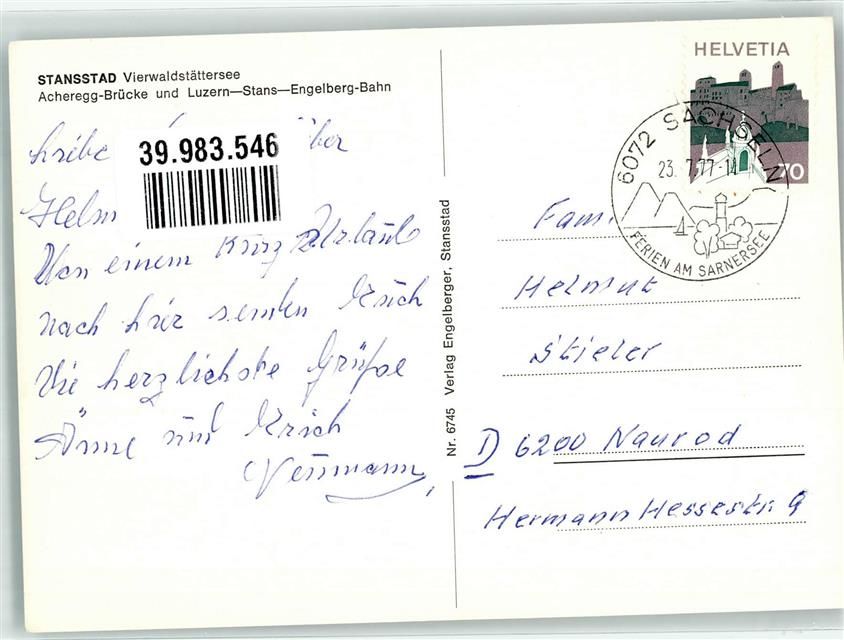 STANSSTAD Vierwaldstättersee
Acheregg-Brücke und Luzern—Stans—Engelberg-Bahn
39.983.546
Von einem Kurz Urlaub
nach hier senden Euch
die herzlichste Grüße
Änne und Erich
Nr. 6745 Verlag Engelberger, Stansstad
HELVETIA
70
6072 SACHSELN
23.7.77
FERIEN AM SARNERSEE
Fam.
Helmut
Stieler
D 6200 Naurod
Hermann Hessestr. 9